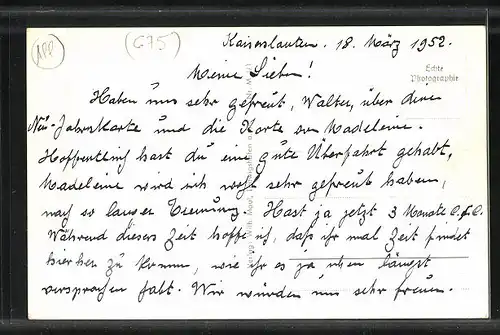 APP
(675)
Kaiserslautern. 18. März 1952.
Meine Lieben!
Echte
Photographie
Haben uns sehr gefreut, Walter, über deine
Neu-Jahrskarte und die Karte von Madeleine.
Hoffentlich hast du eine gute Überfahrt gehabt,
Madeleine wird sich wohl sehr gefreut haben,
nach so langer Trennung. Hast ja jetzt 3 Monate
Während dieser Zeit hoffe ich, daß ihr mal Zeit findet
hierher zu kommen, wie ihr es ja schon längst
versprochen habt. Wir würden uns sehr freuen.